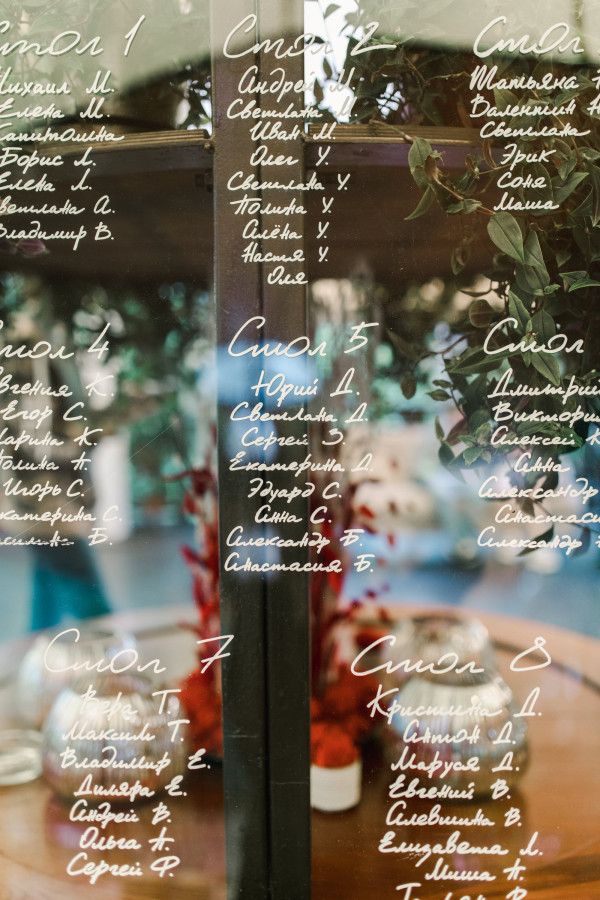 Стол 1
Михаил М.
Елена М.
Капитолина
Борис Л.
Елена Л.
Светлана А.
Владимир В.
Стол 2
Андрей М.
Светлана М.
Иван М.
Олег У.
Светлана У.
Полина У.
Алёна У.
Настя У.
Оля
Стол
Татьяна
Валентин
Светлана
Эрик
Соня
Маша
Стол 4
Евгения К.
Егор С.
Марина К.
Полина Н.
Игорь С.
Екатерина С.
Б.
Стол 5
Юрий Д.
Светлана Д.
Сергей Э.
Екатерина Д.
Эдуард С.
Анна С.
Александр Б.
Анастасия Б.
Стол
Дмитрий
Виктория
Алексей К
Анна
Александр
Анастаси
Александр
Стол 7
Вера Т.
Максим Т.
Владимир Е.
Диляра Е.
Андрей В.
Ольга Н.
Сергей Ф.
Стол 8
Кристина Д.
Антон Д.
Маруся Д.
Евгений В.
Алевтина В.
Елизавета Л.
Миша Н.